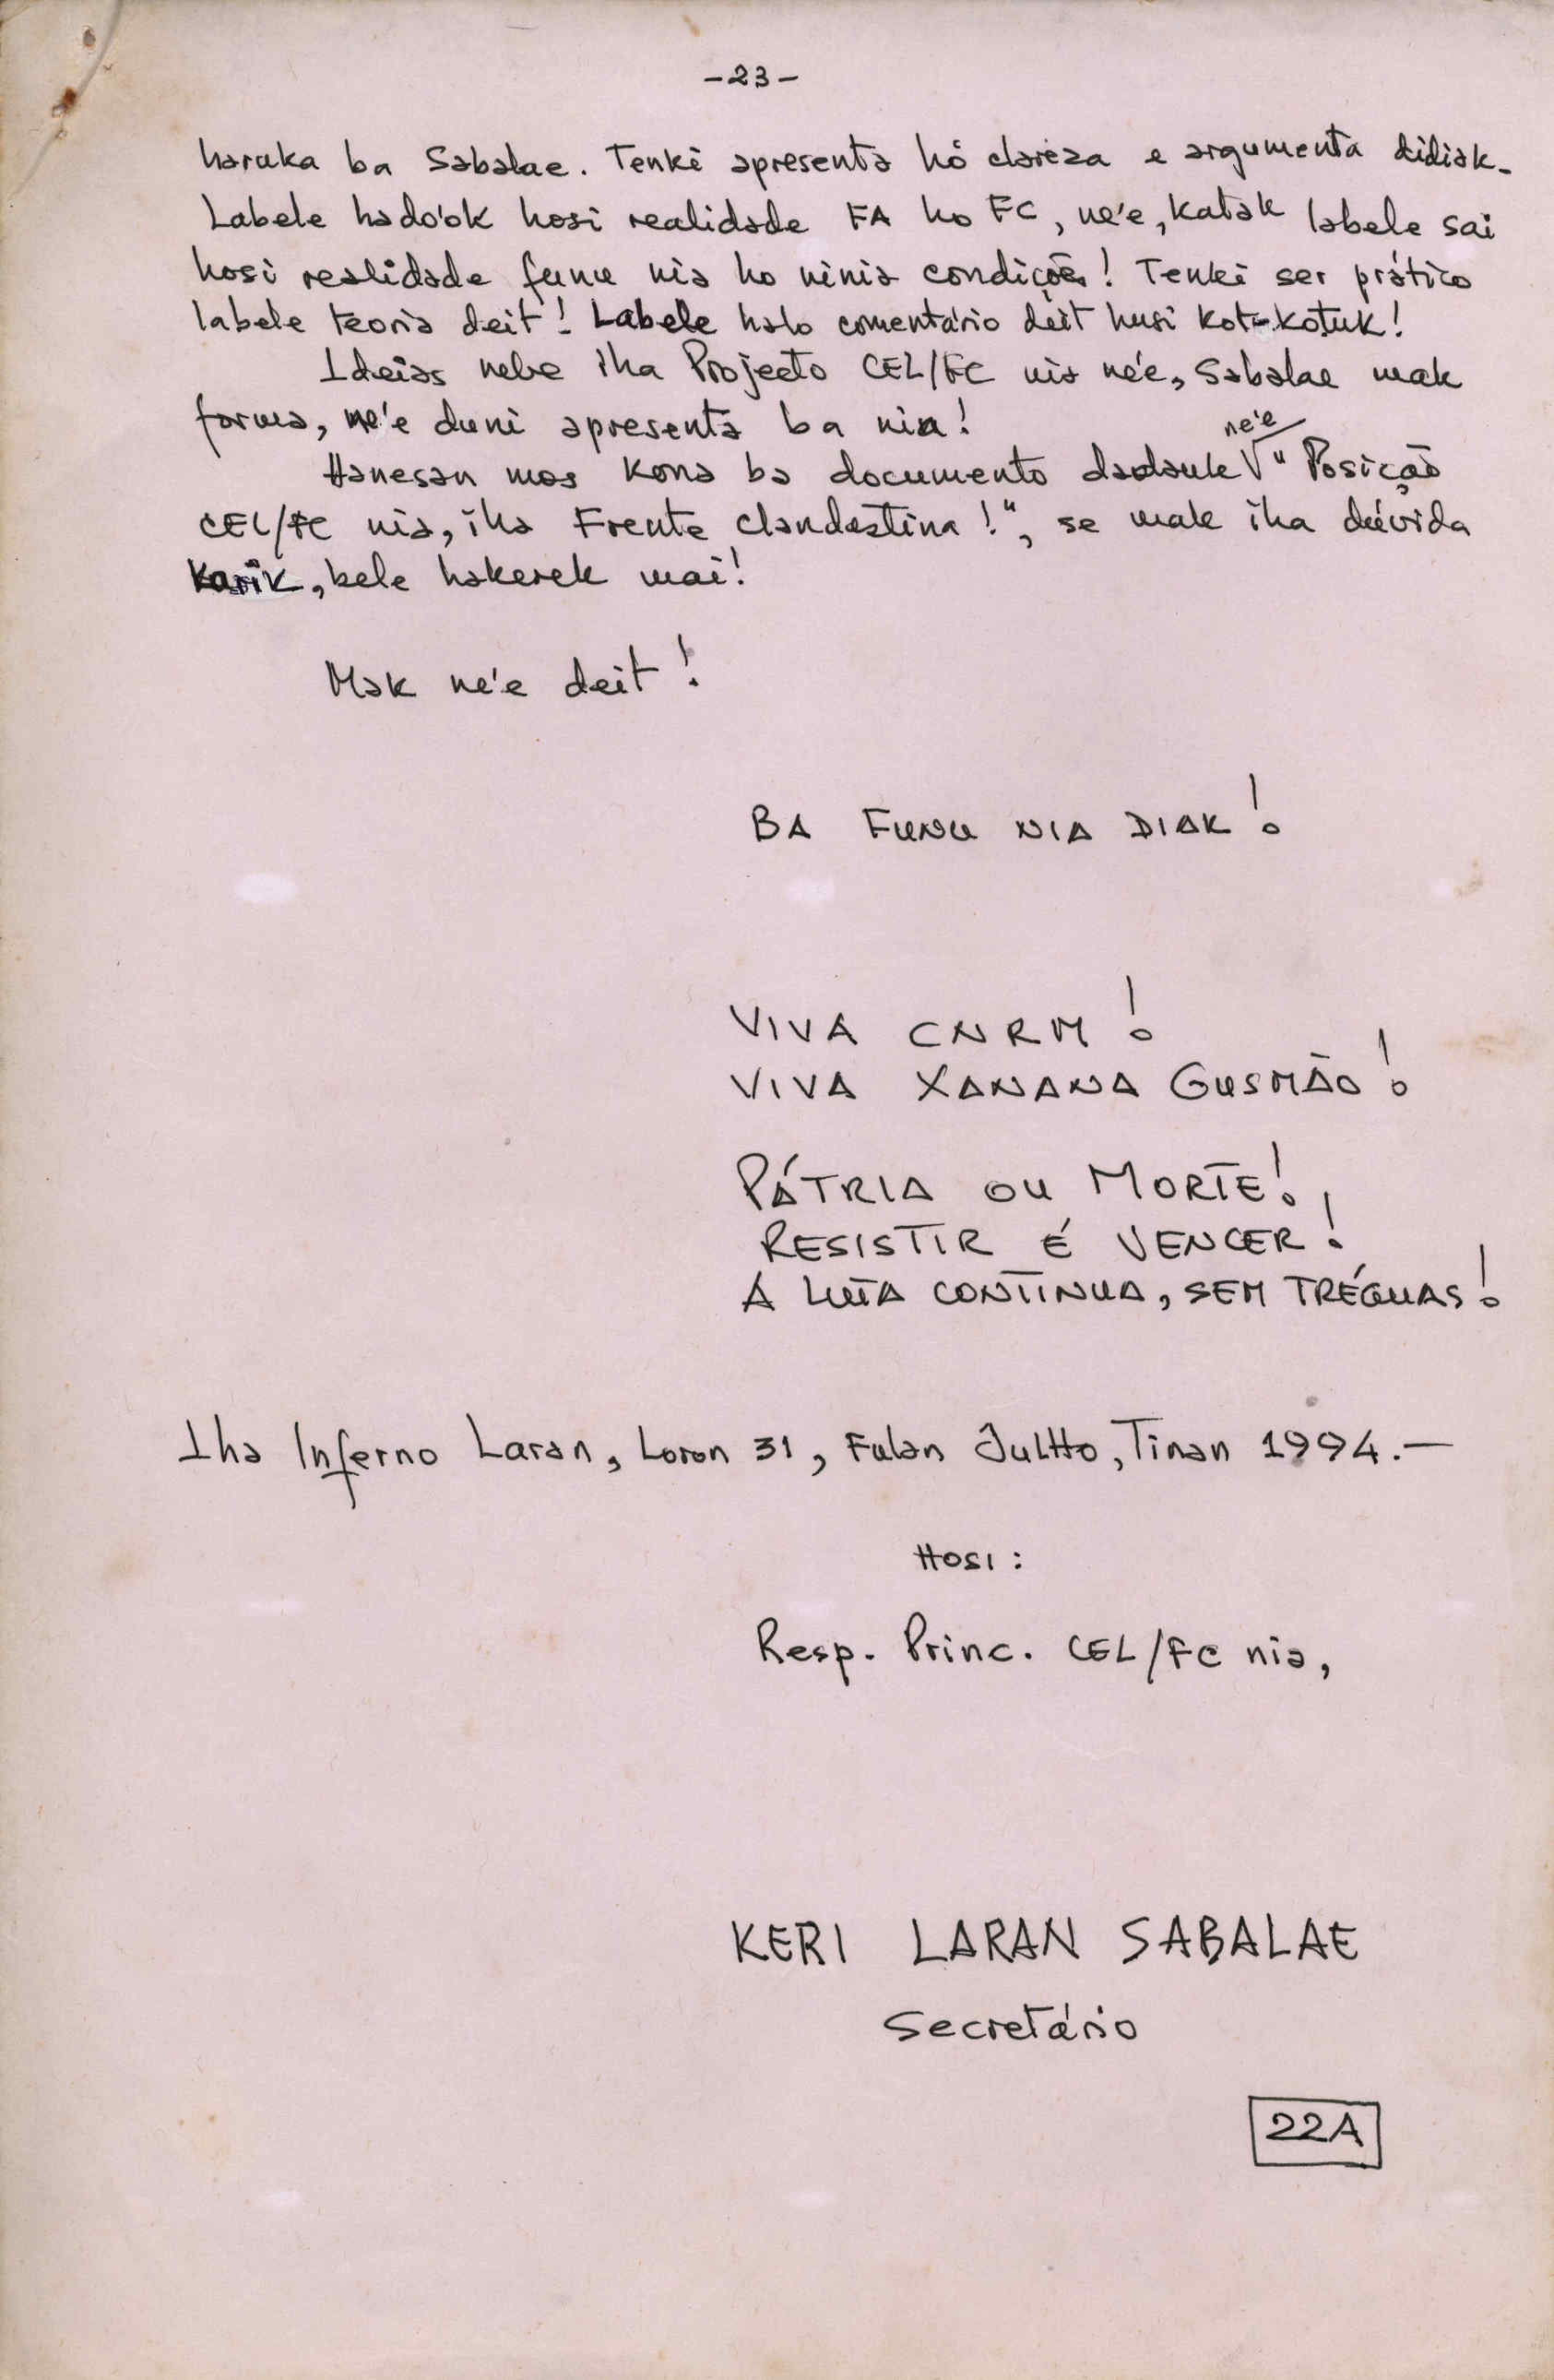 -23-
haruka ba Sabalae. Tenki apresenta hó clareza e argumenta didiak.
Labele hado'ok hosi realidade FA ho FC, ne'e, katak labele sai
hosi realidade funu nia ho ninia condições! Tenki ser prático
labele teoria deit! Labele halo comentário deit husi kot-kotuk!
Ideias nebe iha Projecto CEL/FC nia ne'e, Sabalae mak
forma, ne'e duni apresenta ba nia!
Hanesan mos kona ba documento dadauk ne'e "Posição
CEL/FC nia, iha Frente Clandestina!", se mak iha dúvida
karik, bele hakerek mai!
Mak ne'e deit!
BA FUNU NIA DIAK!
VIVA CNRM!
VIVA XANANA GUSMÃO!
PÁTRIA OU MORTE!
RESISTIR É VENCER!
A LUTA CONTINUA, SEM TRÉGUAS!
Iha Inferno Laran, Loron 31, Fulan JULHO, Tinan 1994.-
HOSI:
Resp. Princ. CEL/FC nia,
KERI LARAN SABALAE
Secretário
22A